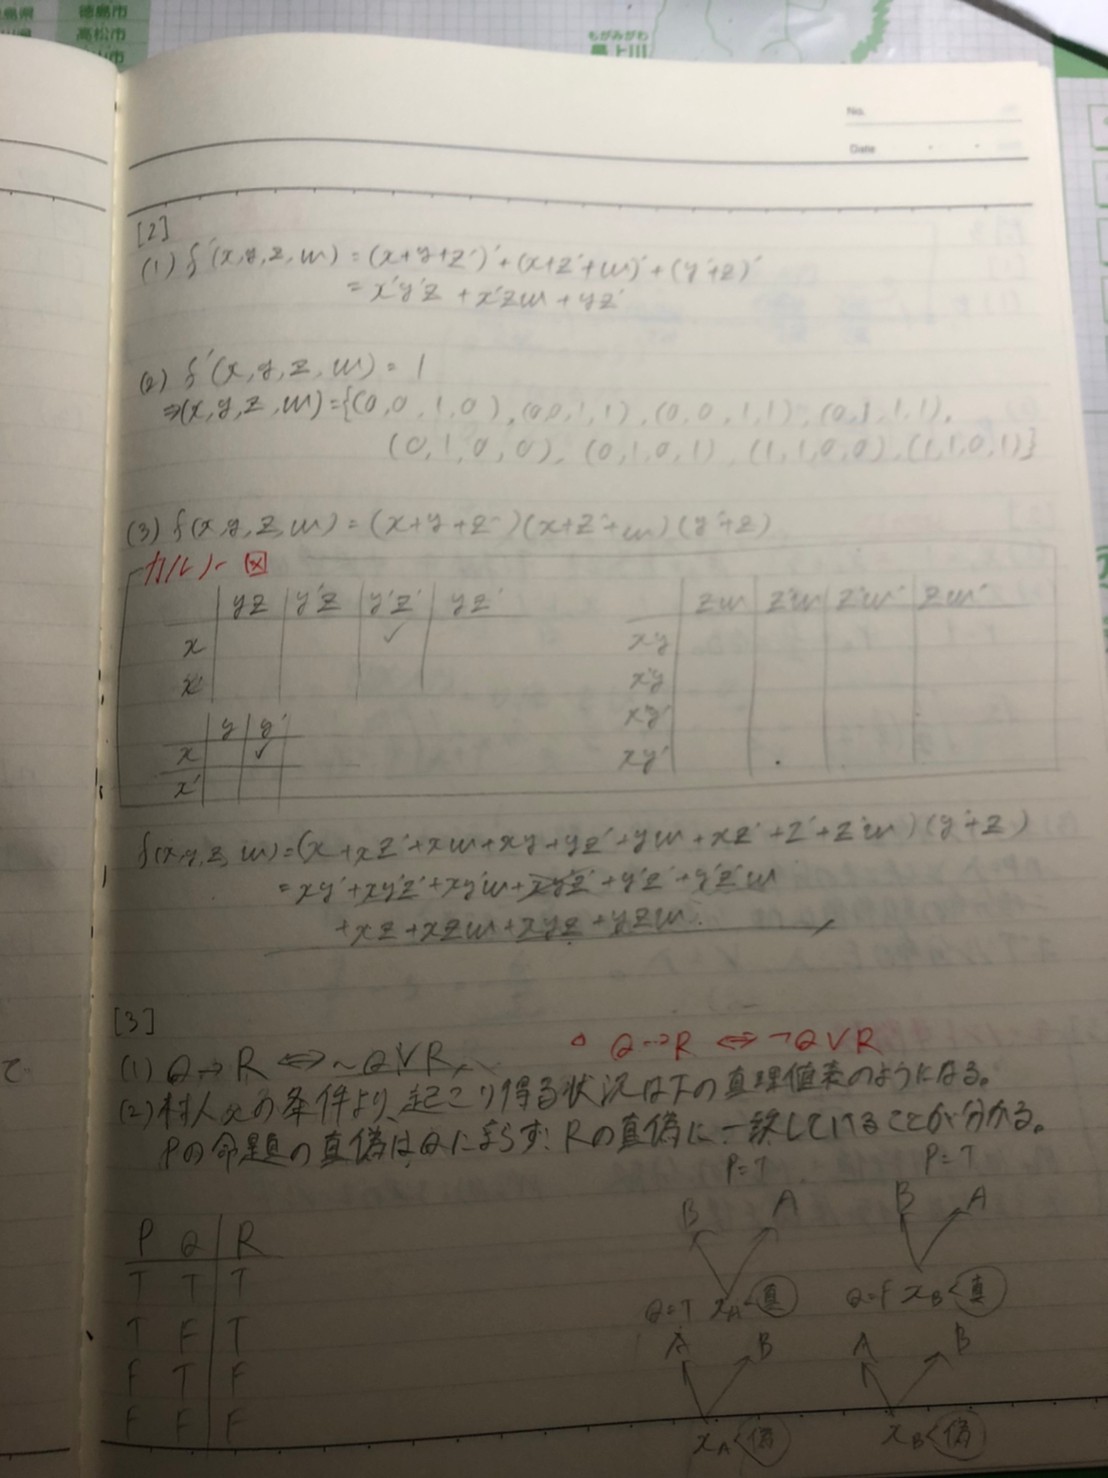 徳島市
高松市
もがみがわ
最上川
No.
Date
[2]
(1) f'(x,y,z,w) = (x+y+z')' + (x+z'+w')' + (y'+z)'
= x'y'z + x'zw + yz'
(2) f'(x,y,z,w) = 1
⇒(x,y,z,w)={(0,0,1,0), (0,0,1,1), (0,0,1,1), (0,1,1,1),
(0,1,0,0), (0,1,0,1), (1,1,0,0), (1,1,0,1)}
(3) f(x,y,z,w) = (x+y+z')(x+z'+w')(y'+z)
カルノー図
yz y'z y'z' yz'
x ✓
x'
y y'
x ✓
x'
zw z'w z'w' zw'
xy
x'y
x'y'
xy'
f(x,y,z,w)=(x+xz'+xw'+xy+yz'+yw'+xz'+z'+z'w')(y'+z)
=xy'+xy'z'+xy'w'+xy'z'+y'z'+y'z'w'
+xz+xzw'+xyz+yzw'
[3]
(1) Q→R ⇔ ~Q∨R
Q→R ⇔ ¬Q∨R
(2)村人xの条件より、起こり得る状況は下の真理値表のようになる。
Pの命題の真偽はQによらず、Rの真偽に一致していることが分かる。
P=T P=T
B A B A
Q=T xA<真 Q=F xB<真
A B A B
xA<偽 xB<偽
P Q R
T T T
T F T
F T F
F F F
て